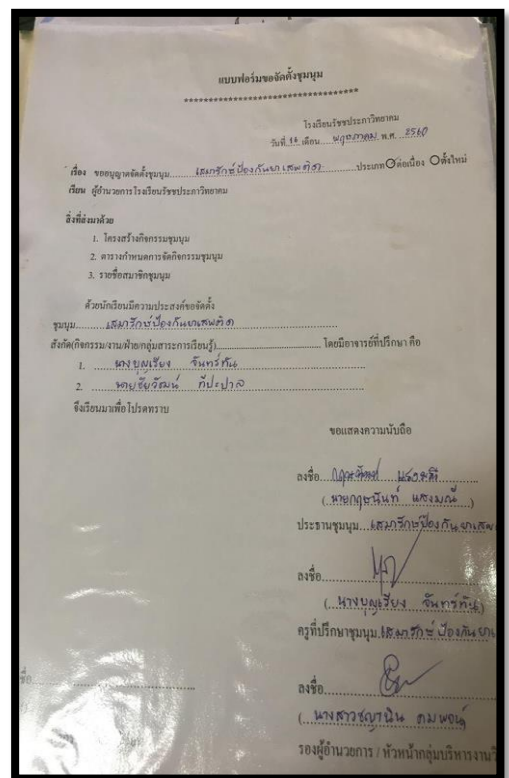 แบบฟอร์มขอจัดตั้งชุมนุม
************************************
โรงเรียนรัชชประภาวิทยาคม
วันที่ 16 เดือน พฤษภาคม พ.ศ. 2560
เรื่อง ขออนุญาตจัดตั้งชุมนุม เสมารักษ์ป้องกันยาเสพติด ประเภท ต่อเนื่อง ตั้งใหม่
เรียน ผู้อำนวยการโรงเรียนรัชชประภาวิทยาคม
สิ่งที่ส่งมาด้วย
1. โครงสร้างกิจกรรมชุมนุม
2. ตารางกำหนดการจัดกิจกรรมชุมนุม
3. รายชื่อสมาชิกชุมนุม
ด้วยนักเรียนมีความประสงค์ขอจัดตั้ง
ชุมนุม เสมารักษ์ป้องกันยาเสพติด
สังกัด(กิจกรรม/งาน/ฝ่าย/กลุ่มสาระการเรียนรู้) โดยมีอาจารย์ที่ปรึกษา คือ
1. นางบุญเรียง จันทร์ทัน
2. นายชัยวัฒน์ ทีปะปาล
จึงเรียนมาเพื่อโปรดทราบ
ขอแสดงความนับถือ
ลงชื่อ กฤษนันท์ แสงมณี
( นายกฤษนันท์ แสงมณี )
ประธานชุมนุม เสมารักษ์ป้องกันยาเสพ
ลงชื่อ
( นางบุญเรียง จันทร์ทัน )
ครูที่ปรึกษาชุมนุม เสมารักษ์ป้องกันยา
ชื่อ ลงชื่อ
( นางสาวชญานิน
รองผู้อำนวยการ / หัวหน้ากลุ่มบริหารงานวิ